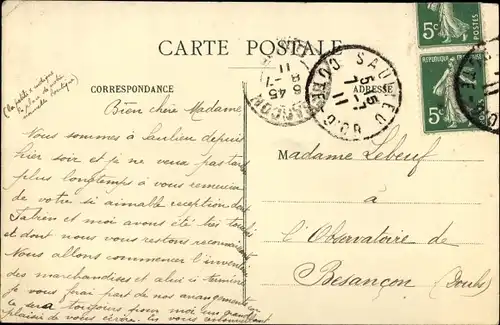 CARTE POSTALE
CORRESPONDANCE
ADRESSE
Bien chère Madame
Nous sommes à Saulieu depuis
hier soir et je ne veux pas tarder
plus longtemps à vous remercier
de votre si aimable réception dont
Fabien et moi avons été très touchés
et dont nous vous restons reconnaissants
Nous allons commencer l'inventaire
des marchandises et ainsi terminé
je vous ferai part de nos arrangements
ce sera toujours pour moi un grand
plaisir de vous écrire
Madame Lebeuf
à
l'Observatoire de
Besançon (Doubs)
SAULIEU
CÔTE D'OR
5 c
5 c